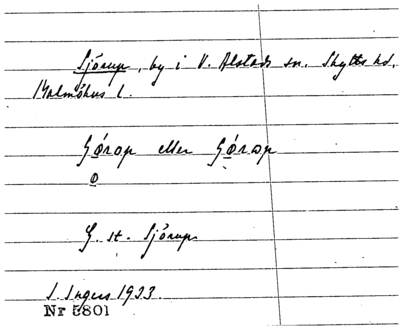 Sjörup, by i V. Alstads sn. Skytts hd,
Malmöhus l.
Górap eller Górap
o
G. st. Sjörup
I. Ingers 1933.
Nr 5801